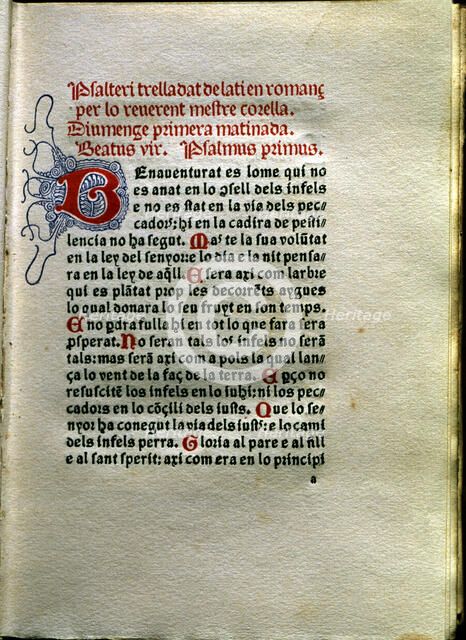 Psalteri trelladat de lati en romanç
per lo reuerent mestre corella.
Diumenge primera matinada.
Beatus vir. Psalmus primus.
BEnauenturat es lome qui no
es anat en lo ꝯsell dels infels
e no es stat en la via dels pec⸗
cadors: hi en la cadira de pesti⸗
lencia no ha segut. Mas te la sua volūtat
en la ley del senyor: e lo dia e la nit pensa⸗
ra en la ley de aq̄ll. E sera axi com larbre
qui es plātat prop les decorrēts aygues
lo qual donara lo seu fruyt en son temps.
E no ꝑdra fulla hi en tot lo que fara sera
ꝓsperat. No seran tals los infels no serā
tals: mas serā axi com a pols la qual lan⸗
ça lo vent de la faç de la terra. E ꝑço no
resuscitē los infels en lo iuhi: ni los pec⸗
cadors en lo cōçili dels iusts. Que lo se⸗
nyor ha conegut la via dels iusts: e lo cami
dels infels perra. Gloria al pare e al fill
e al sant sperit: axi com era en lo principi
a
Heritage